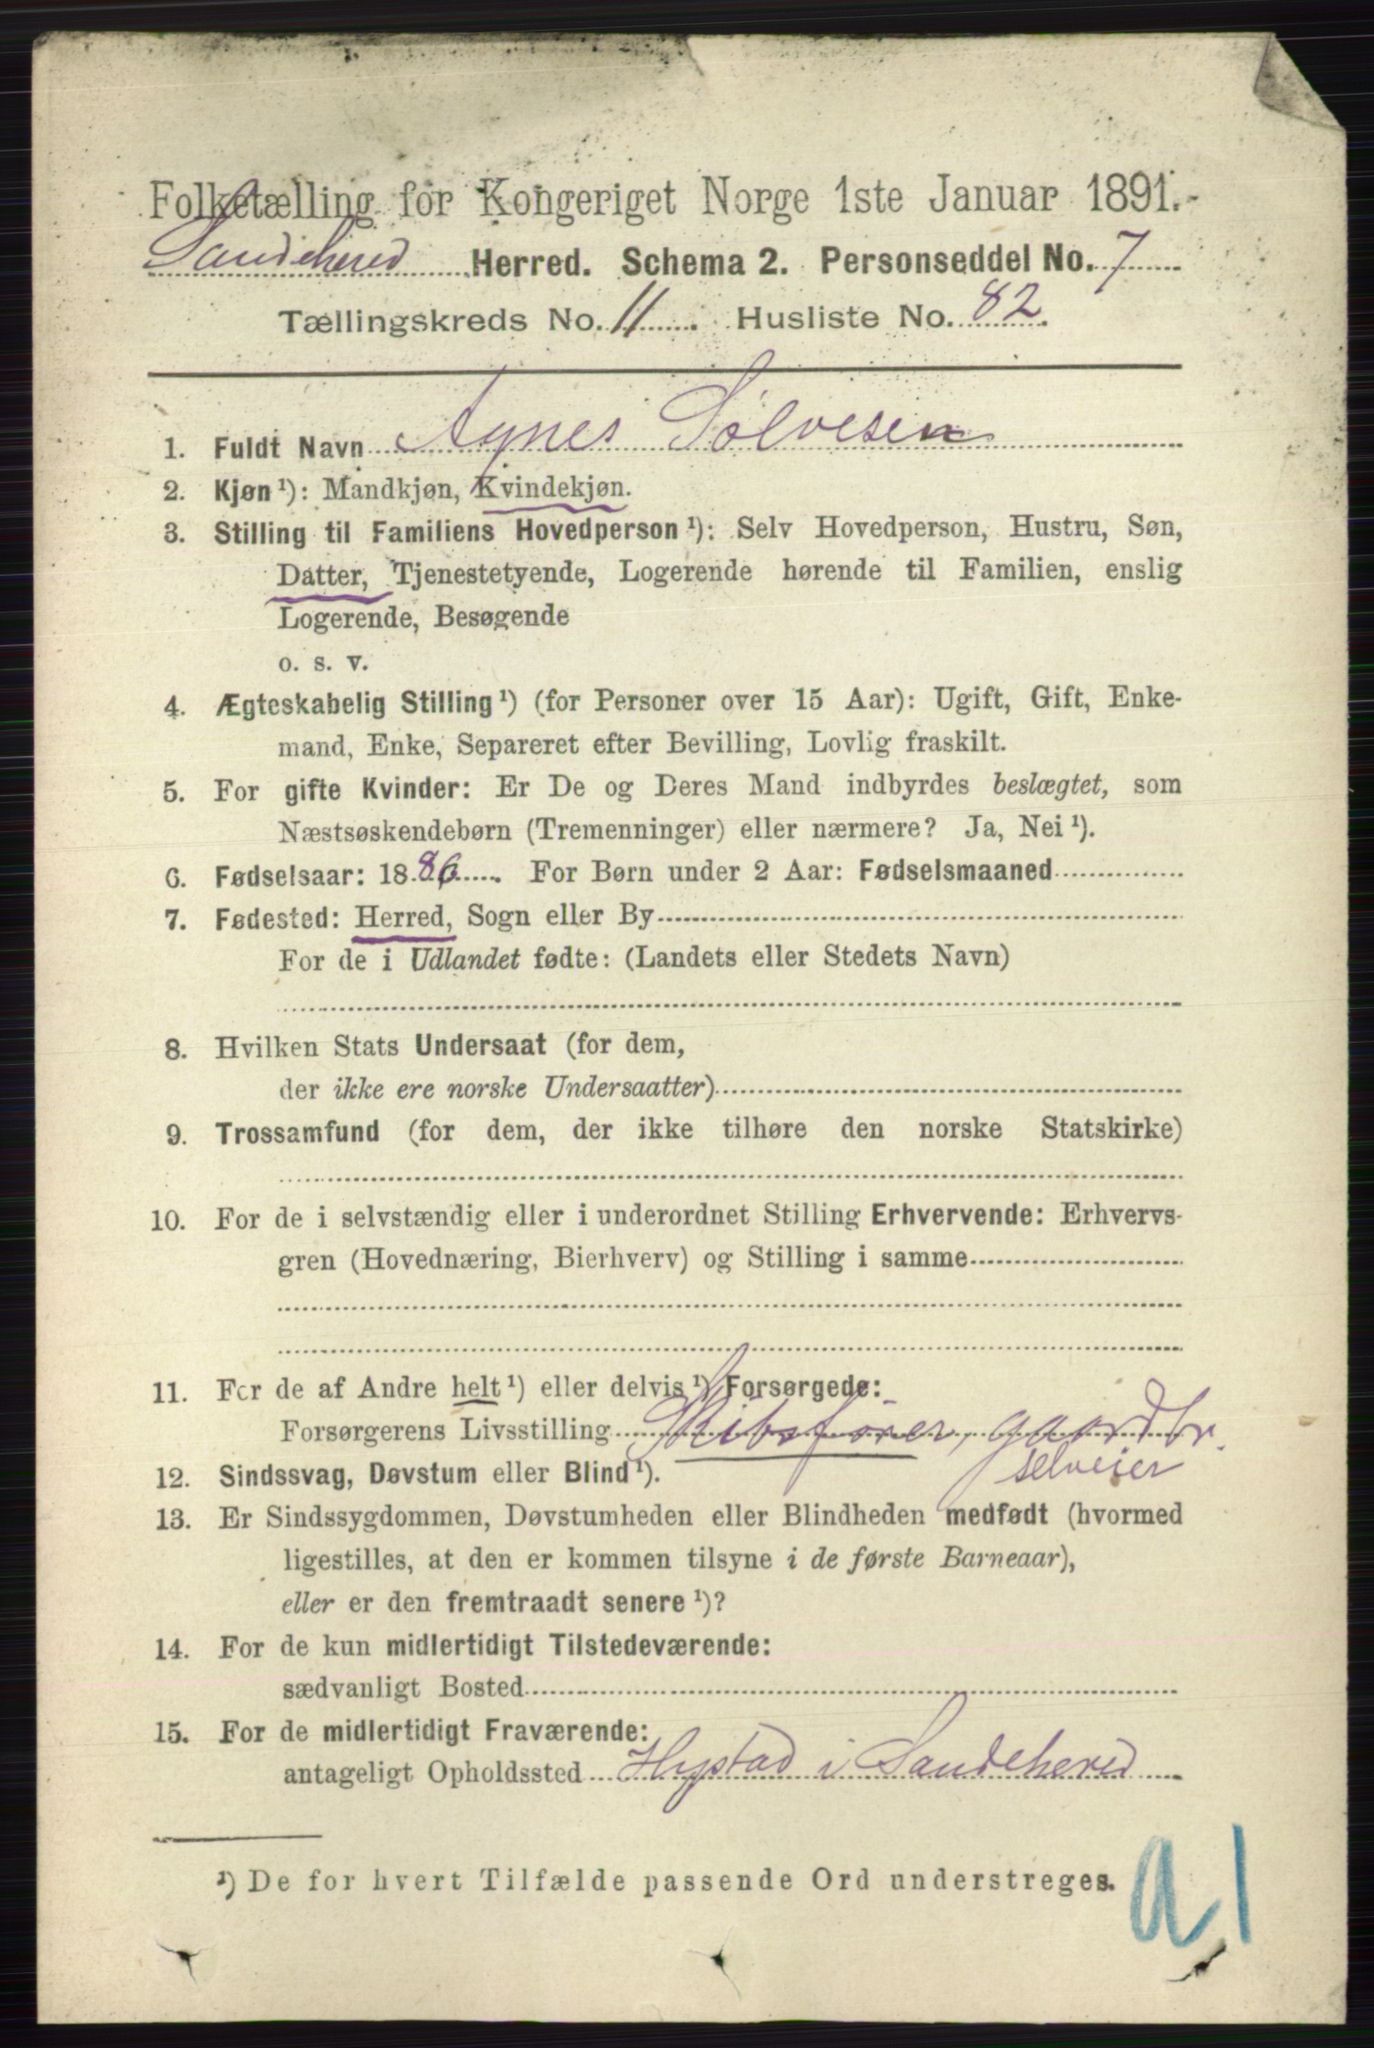 Folketælling for Kongeriget Norge 1ste Januar 1891.
Sandehered Herred. Schema 2. Personseddel No. 7
Tællingskreds No. 11. Husliste No. 82.
1. Fuldt Navn Agnes Sølvesen
2. Kjøn ¹): Mandkjøn, Kvindekjøn.
3. Stilling til Familiens Hovedperson ¹): Selv Hovedperson, Hustru, Søn,
Datter, Tjenestetyende, Logerende hørende til Familien, enslig
Logerende, Besøgende
o. s. v.
4. Ægteskabelig Stilling ¹) (for Personer over 15 Aar): Ugift, Gift, Enke-
mand, Enke, Separeret efter Bevilling, Lovlig fraskilt.
5. For gifte Kvinder: Er De og Deres Mand indbyrdes beslægtet, som
Næstsøskendebørn (Tremenninger) eller nærmere? Ja, Nei ¹).
6. Fødselsaar: 1886. For Børn under 2 Aar: Fødselsmaaned
7. Fødested: Herred, Sogn eller By
For de i Udlandet fødte: (Landets eller Stedets Navn)
8. Hvilken Stats Undersaat (for dem,
der ikke ere norske Undersaatter)
9. Trossamfund (for dem, der ikke tilhøre den norske Statskirke)
10. For de i selvstændig eller i underordnet Stilling Erhvervende: Erhvervs-
gren (Hovednæring, Bierhverv) og Stilling i samme
11. For de af Andre helt ¹) eller delvis ¹) Forsørgede:
Forsørgerens Livsstilling Skibsfører, gaardbr.
selveier
12. Sindssvag, Døvstum eller Blind ¹).
13. Er Sindssygdommen, Døvstumheden eller Blindheden medfødt (hvormed
ligestilles, at den er kommen tilsyne i de første Barneaar),
eller er den fremtraadt senere ¹)?
14. For de kun midlertidigt Tilstedeværende:
sædvanligt Bosted
15. For de midlertidigt Fraværende:
antageligt Opholdssted Hystad i Sandehered
¹) De for hvert Tilfælde passende Ord understreges.
a1